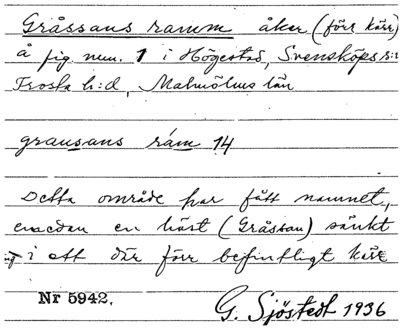 Gråssans ramm åker (förr kärr)
å fig. num. 1 i Högestad, Svensköps s:n
Frosta h:d, Malmöhus län
grausans rám 14
Detta område har fått namnet,
enedan en häst (Gråssan) sänkt
i ett där förr befintligt kärr
Nr 5942.
G. Sjöstedt 1936